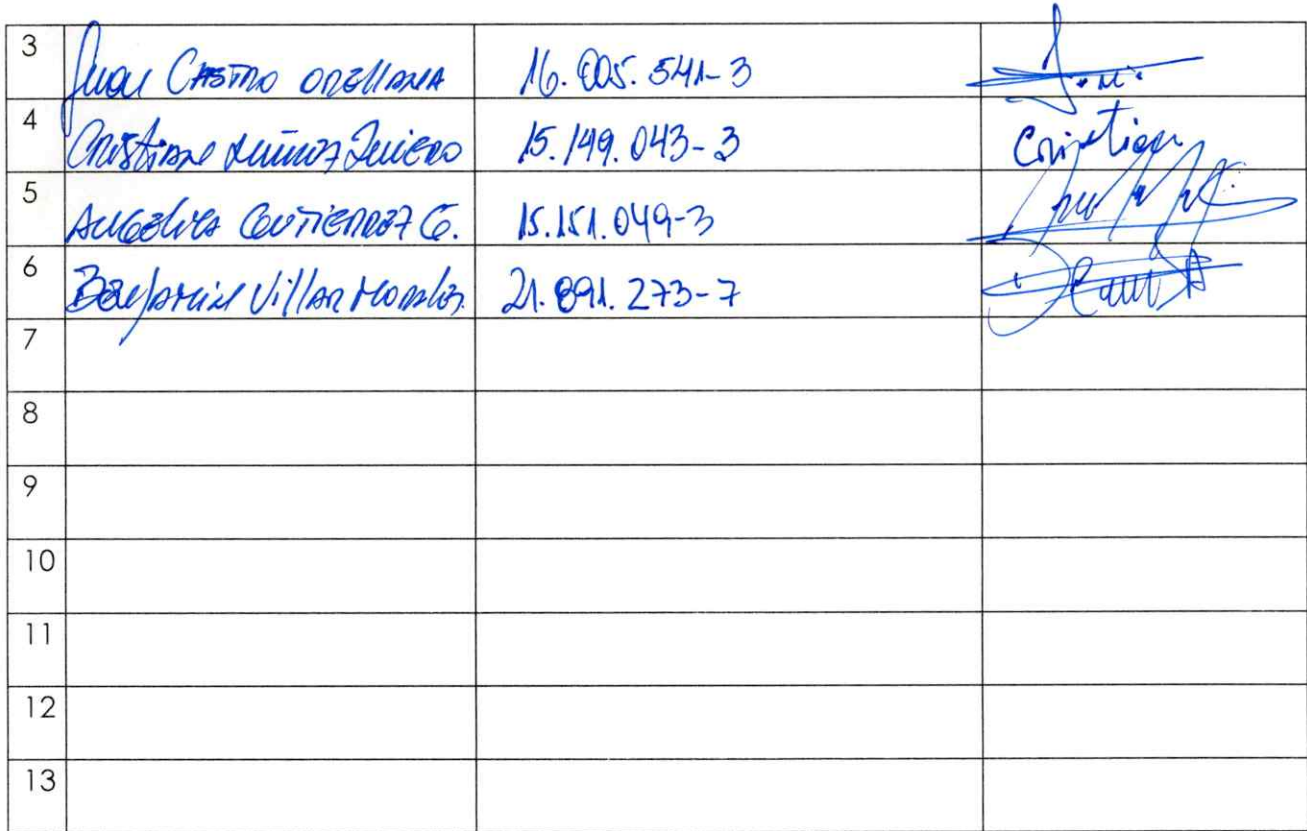 3 Juan Castro Orellana 16.005.541-3
4 Cristian Muñoz 15.149.043-3 Cristian
5 Angelica Gutierrez G. 15.151.049-3
6 Benjamin Villar Morales. 21.891.273-7
7
8
9
10
11
12
13